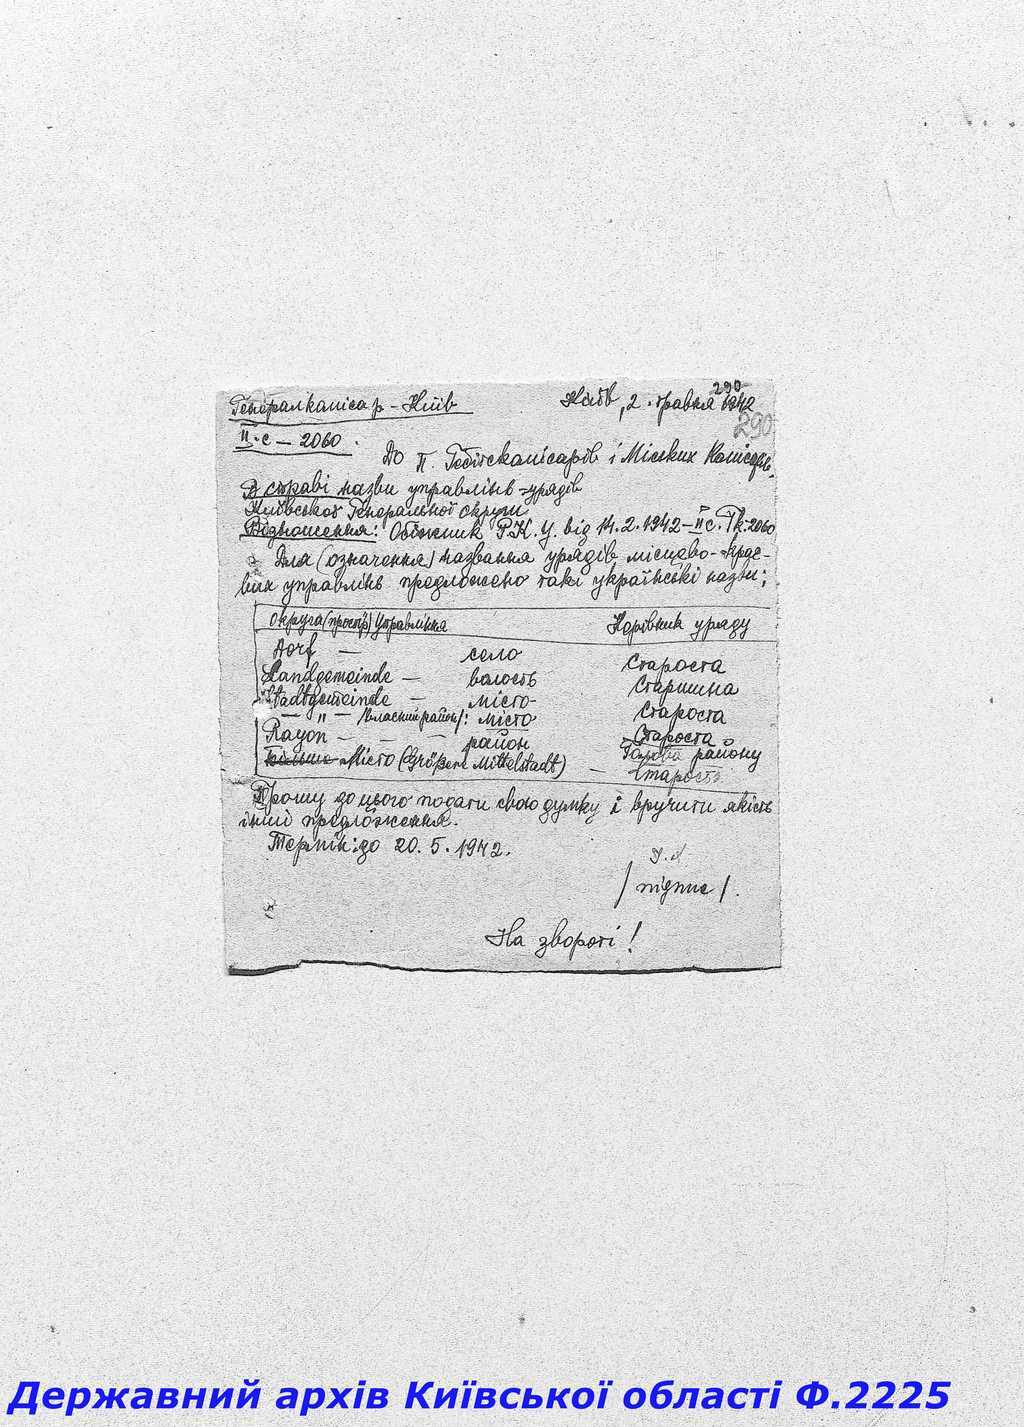 290
Генералкамісар - Київ Київ, 2. травня 1942
290
II.c - 2060.
До п. Гебітскамісарів і Міських Комісарів.
В справі назви управлінь-урядів
Київської Генеральної округи
Відношення: Обіжник Р.К.У. від 14.2.1942-II c. Tk: 2060
Для (означення) названня урядів місцево-крає-
вих управлінь предложено такі українські назви;
округа (простір) Управління Керівник уряду
Dorf — село Староста
Landgemeinde — волость Старшина
Stadtgemeinde — місто- Староста
— " — /власний район/: місто Староста
Rayon — — — район Голова району
Більше Місто (Größere Mittelstadt) — Староста
Прошу до цього подати свою думку і вручити якісь
інші предложення.
Термін: до 20.5.1942.
/ підпис /.
На звороті!
Державний архів Київської області Ф.2225